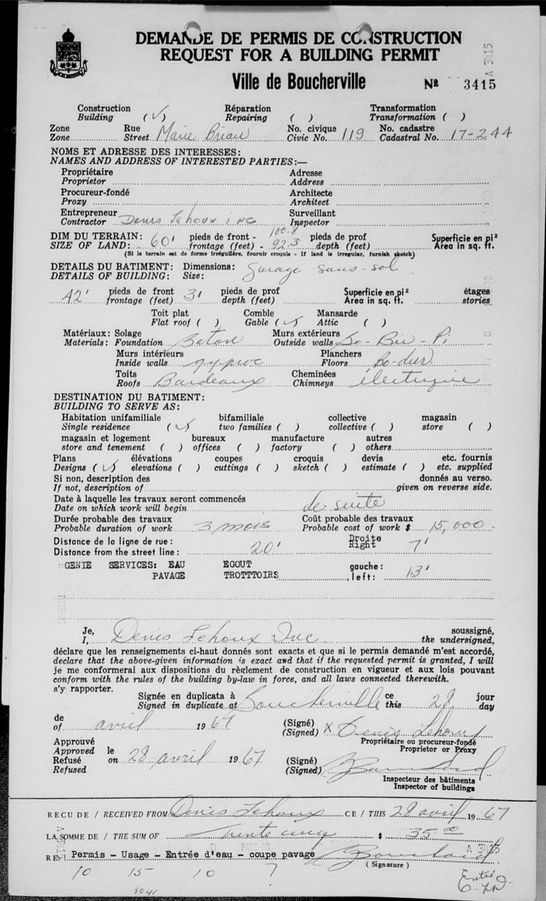 DEMANDE DE PERMIS DE CONSTRUCTION
REQUEST FOR A BUILDING PERMIT
Ville de Boucherville Nº 3415
Construction Réparation Transformation
Building (✓) Repairing ( ) Transformation ( )
Zone Rue No. civique No. cadastre
Zone Street Marie Briau Civic No. 119 Cadastral No. 17-244
NOMS ET ADRESSE DES INTERESSES:
NAMES AND ADDRESS OF INTERESTED PARTIES:—
Propriétaire Adresse
Proprietor Address
Procureur-fondé Architecte
Proxy Architect
Entrepreneur Surveillant
Contractor Denis Lehoux inc Inspector
DIM DU TERRAIN: pieds de front - 100.8 pieds de prof Superficie en pi²
SIZE OF LAND: 60' frontage (feet) - 92.3 depth (feet) Area in sq. ft.
(Si le terrain est de forme irrégulière, fournir croquis - If land is irregular, furnish sketch)
DETAILS DU BATIMENT: Dimensions: garage sous-sol
DETAILS OF BUILDING: Size:
42' pieds de front 31 pieds de prof Superficie en pi² étages
frontage (feet) depth (feet) Area in sq. ft. stories
Toit plat Comble Mansarde
Flat roof ( ) Gable (✓) Attic ( )
Matériaux: Solage Murs extérieurs
Materials: Foundation Beton Outside walls
Murs intérieurs Planchers
Inside walls gyproc Floors Bo-dur
Toits Cheminées
Roofs Bardeaux Chimneys électrique
DESTINATION DU BATIMENT:
BUILDING TO SERVE AS:
Habitation unifamiliale bifamiliale collective magasin
Single residence (✓) two families ( ) collective ( ) store ( )
magasin et logement bureaux manufacture autres
store and tenement ( ) offices ( ) factory ( ) others
Plans élévations coupes croquis devis etc. fournis
Designs (✓) elevations ( ) cuttings ( ) sketch ( ) estimate ( ) etc. supplied
Si non, description des donnés au verso.
If not, description of given on reverse side.
Date à laquelle les travaux seront commencés
Date on which work will begin de suite
Durée probable des travaux Coût probable des travaux
Probable duration of work 3 mois Probable cost of work $ 15,000-
Distance de la ligne de rue: Droite
Distance from the street line: 20' Right 7'
GENIE SERVICES: EAU EGOUT gauche:
PAVAGE TROTTTOIRS left: 13'
Je, soussigné,
I, Denis Lehoux Inc the undersigned,
déclare que les renseignements ci-haut donnés sont exacts et que si le permis demandé m'est accordé,
declare that the above-given information is exact and that if the requested permit is granted, I will
je me conformerai aux dispositions du règlement de construction en vigueur et aux lois pouvant
conform with the rules of the building by-law in force, and all laws connected therewith.
s'y rapporter.
Signée en duplicata à ce jour
Signed in duplicate at Boucherville this 28 day
de (Signé)
of avril 1967 (Signed) X Denis Lehoux
Propriétaire ou procureur-fondé
Proprietor or Proxy
Approuvé
Approved le
Refusé on 28 avril 1967 (Signé)
Refused (Signed)
Inspecteur des bâtiments
Inspector of buildings
RECU DE / RECEIVED FROM Denis Lehoux CE / THIS 28 avril 1967
LA SOMME DE / THE SUM OF trente cinq $ 35.00
RE: Permis - Usage - Entrée d'eau - coupe pavage
( Signature )
10 15 10 7
9041